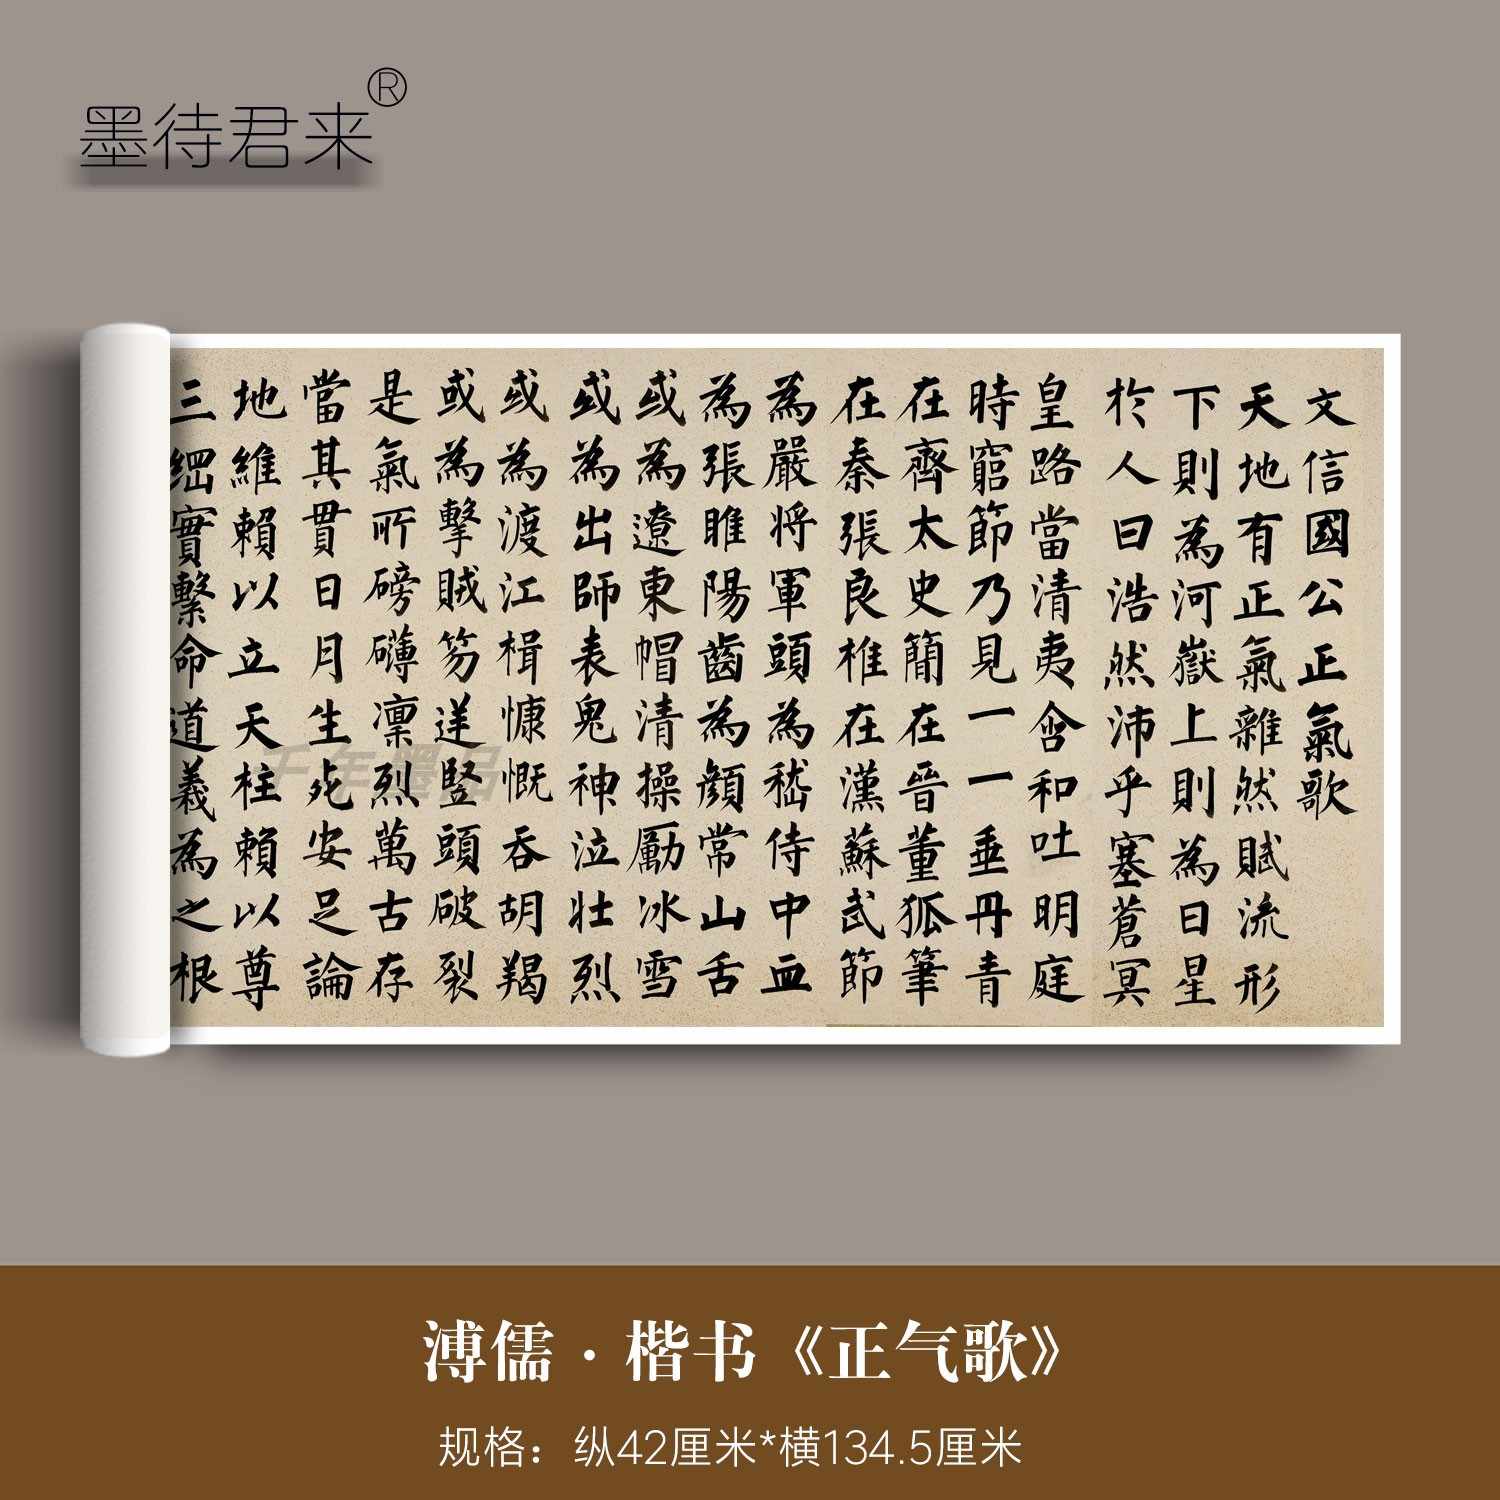 墨待君来®
文信國公正氣歌
天地有正氣雜然賦流形
下則為河嶽上則為日星
於人曰浩然沛乎塞蒼冥
皇路當清夷含和吐明庭
時窮節乃見一一垂丹青
在齊太史簡在晉董狐筆
在秦張良椎在漢蘇武節
為嚴將軍頭為嵇侍中血
為張睢陽齒為顏常山舌
或為遼東帽清操勵冰雪
或為出師表鬼神泣壯烈
或為渡江楫慷慨吞胡羯
或為擊賊笏逆豎頭破裂
是氣所磅礴凜烈萬古存
當其貫日月生死安足論
地維賴以立天柱賴以尊
三綱實繫命道義為之根
千年墨品
溥儒·楷书《正气歌》
规格：纵42厘米*横134.5厘米